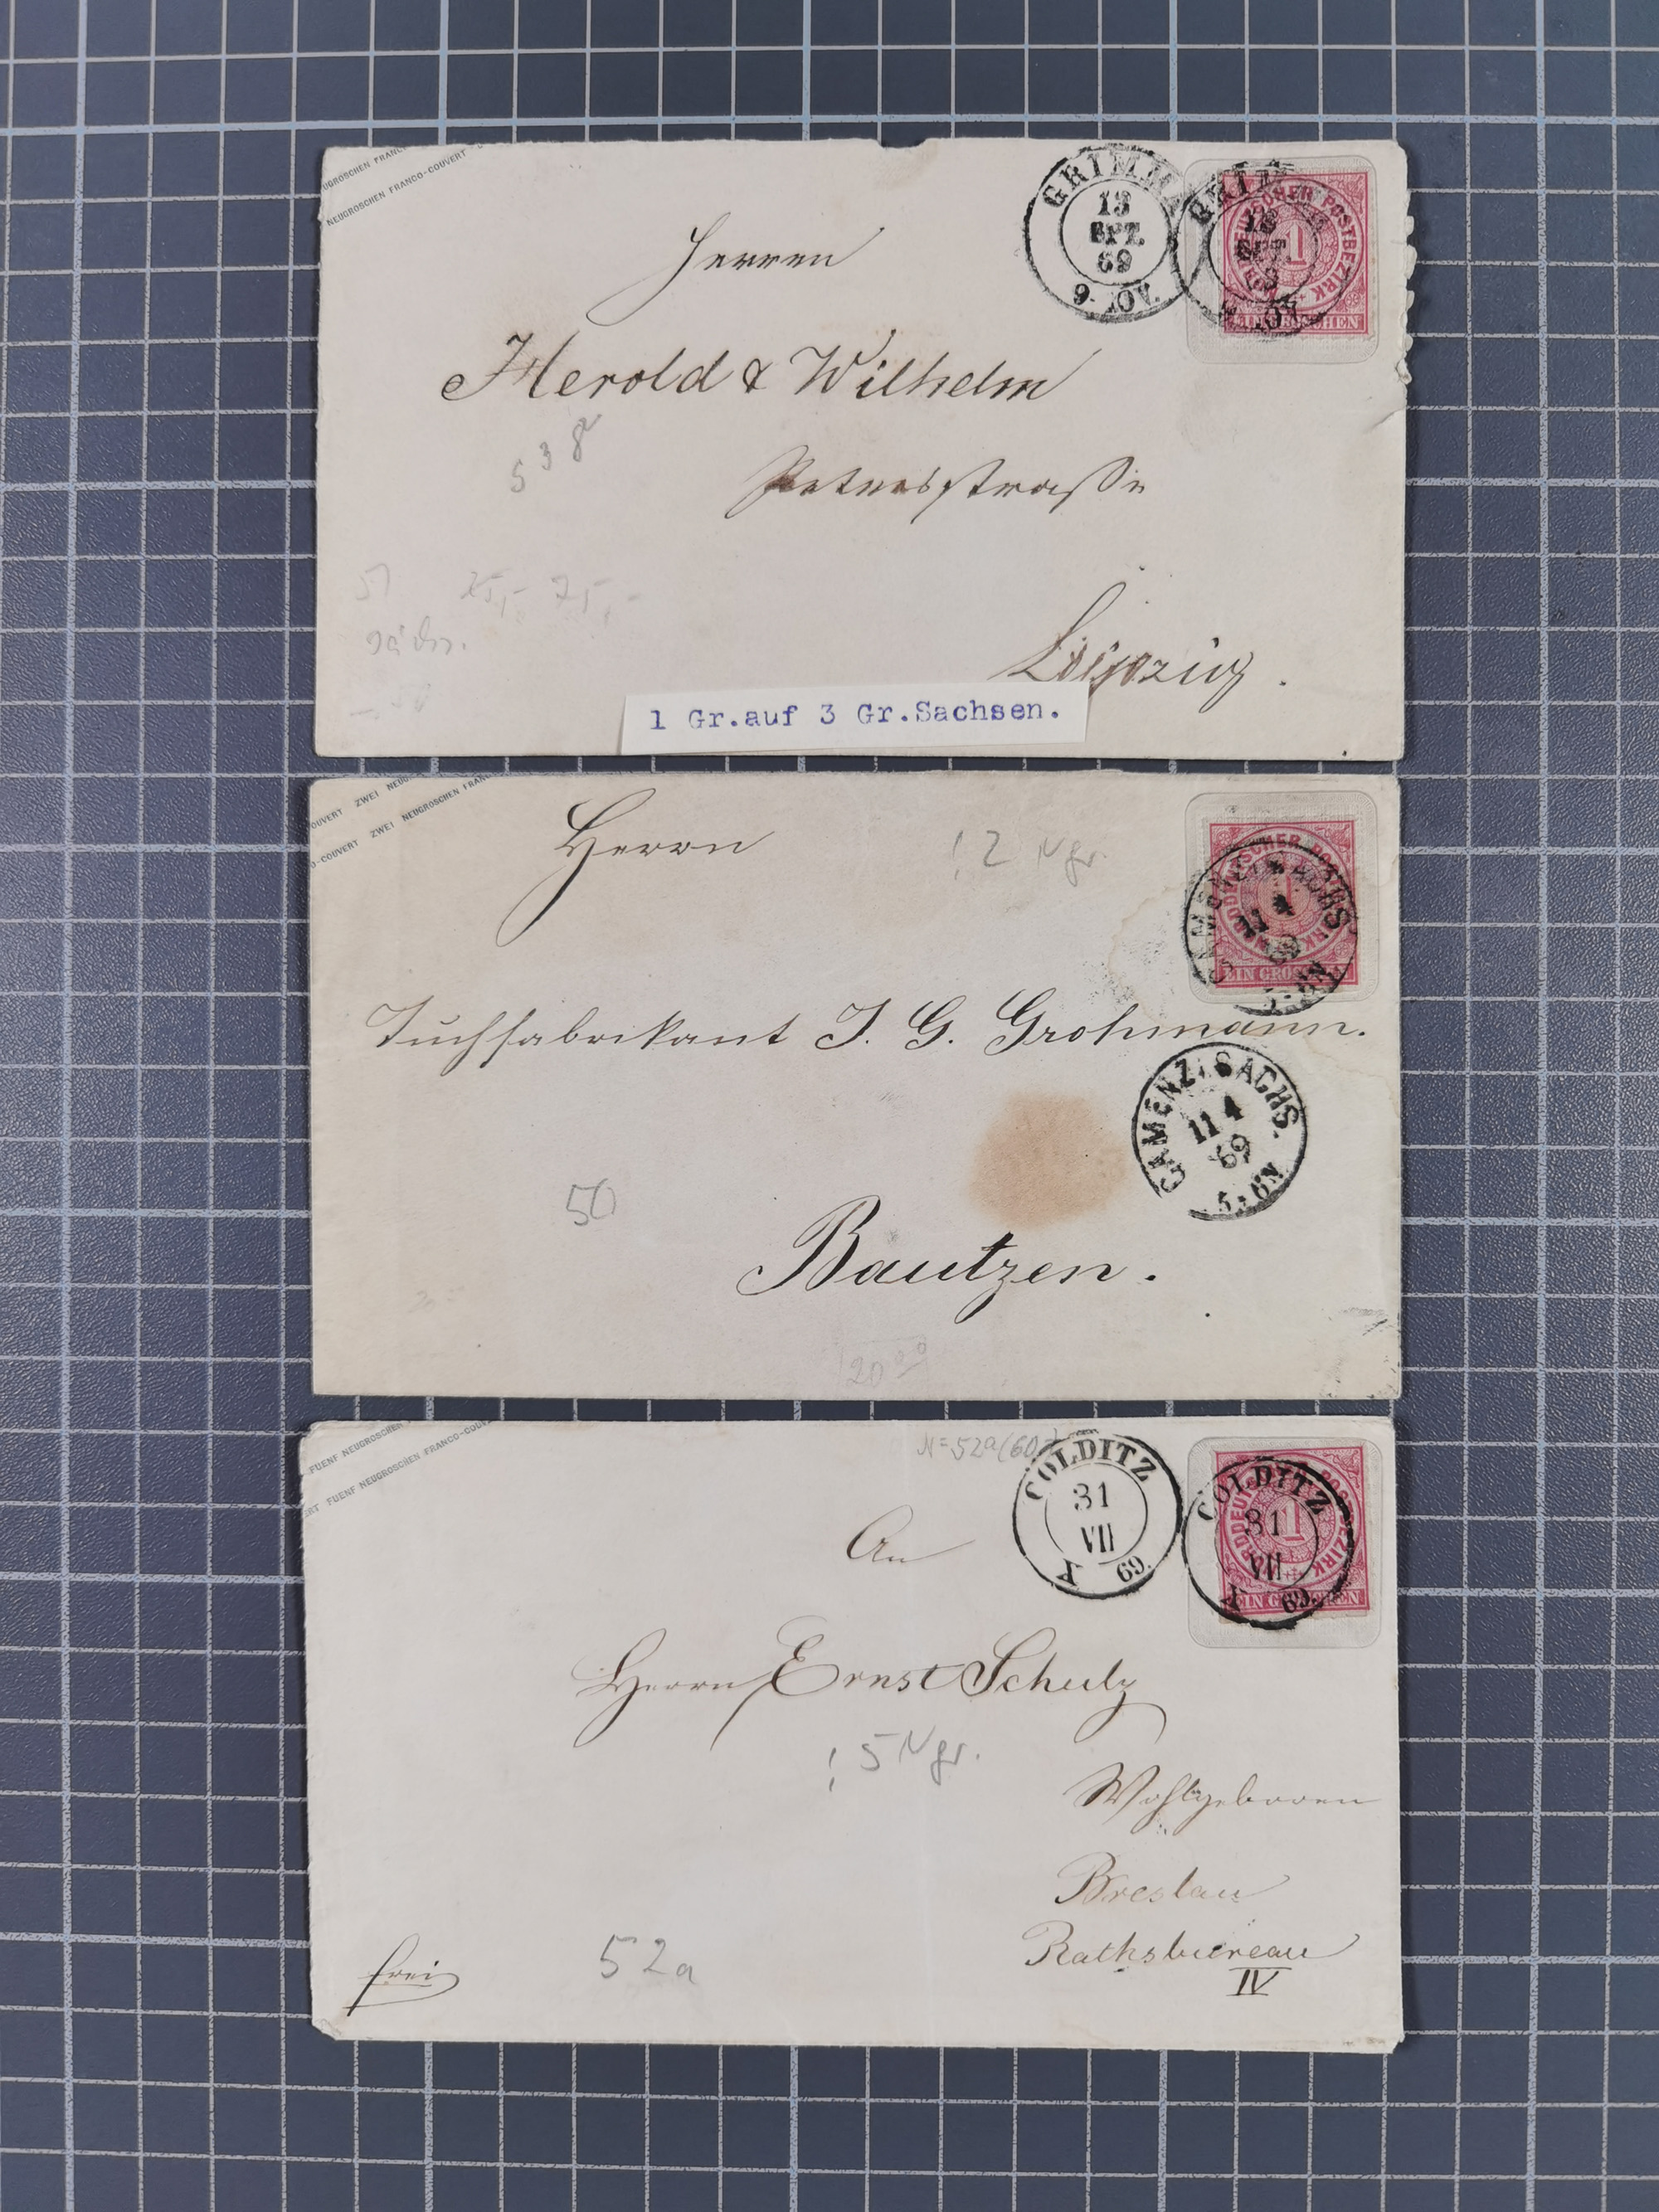 NEUGROSCHEN FRANCO-COUVERT
GRIMMA
13
SPT.
69
9-10V.
NORDDEUTSCHER POSTBEZIRK
1
EIN GROSCHEN
Herren
Herold & Wilhelm
538
Petersstraße
51 25,- 75,-
Sächs.
Leipzig.
1 Gr.auf 3 Gr.Sachsen.
COUVERT ZWEI NEUG
O-COUVERT ZWEI NEUGROSCHEN FRAN
Herrn
! 2 Ngr.
NORDDEUTSCHER POSTBEZIRK
1
EIN GROSCHEN
CAMENZ i/SACHS.
11 4
69
5-6N
Tuchfabrikant J. G. Grohmann.
CAMENZ i/SACHS.
11 4
69
5-6N
50
Bautzen.
20 00
FUENF NEUGROSCHEN
ERT FUENF NEUGROSCHEN FRANCO-COUV
N=52a(60,-)
COLDITZ
31
VII
X 69.
COLDITZ
31
VII
X 69.
NORDDEUTSCHER POSTBEZIRK
1
EIN GROSCHEN
An
Herrn Ernst Schulz
! 5 Ngr.
Wohlgeboren
Breslau
Rathsbureau
IV
frei
52a